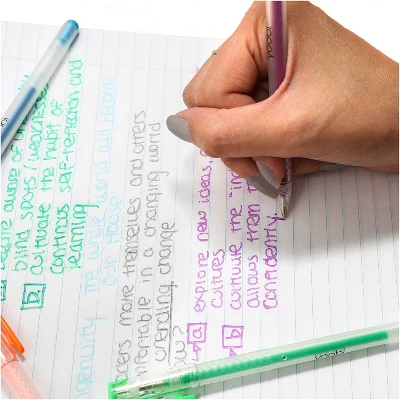 become aware of
blind spots/weaknesses
b. cultivate the habit of
continuous self-reflection and
learning
ingenuity, the whole world will become
our house
make themselves and others
comfortable in a changing world
unending change
?
→ a explore new ideas,
cultures
→ b cultivate the "in
allows them t
confidently.
yoobi
yoobi
yoobi